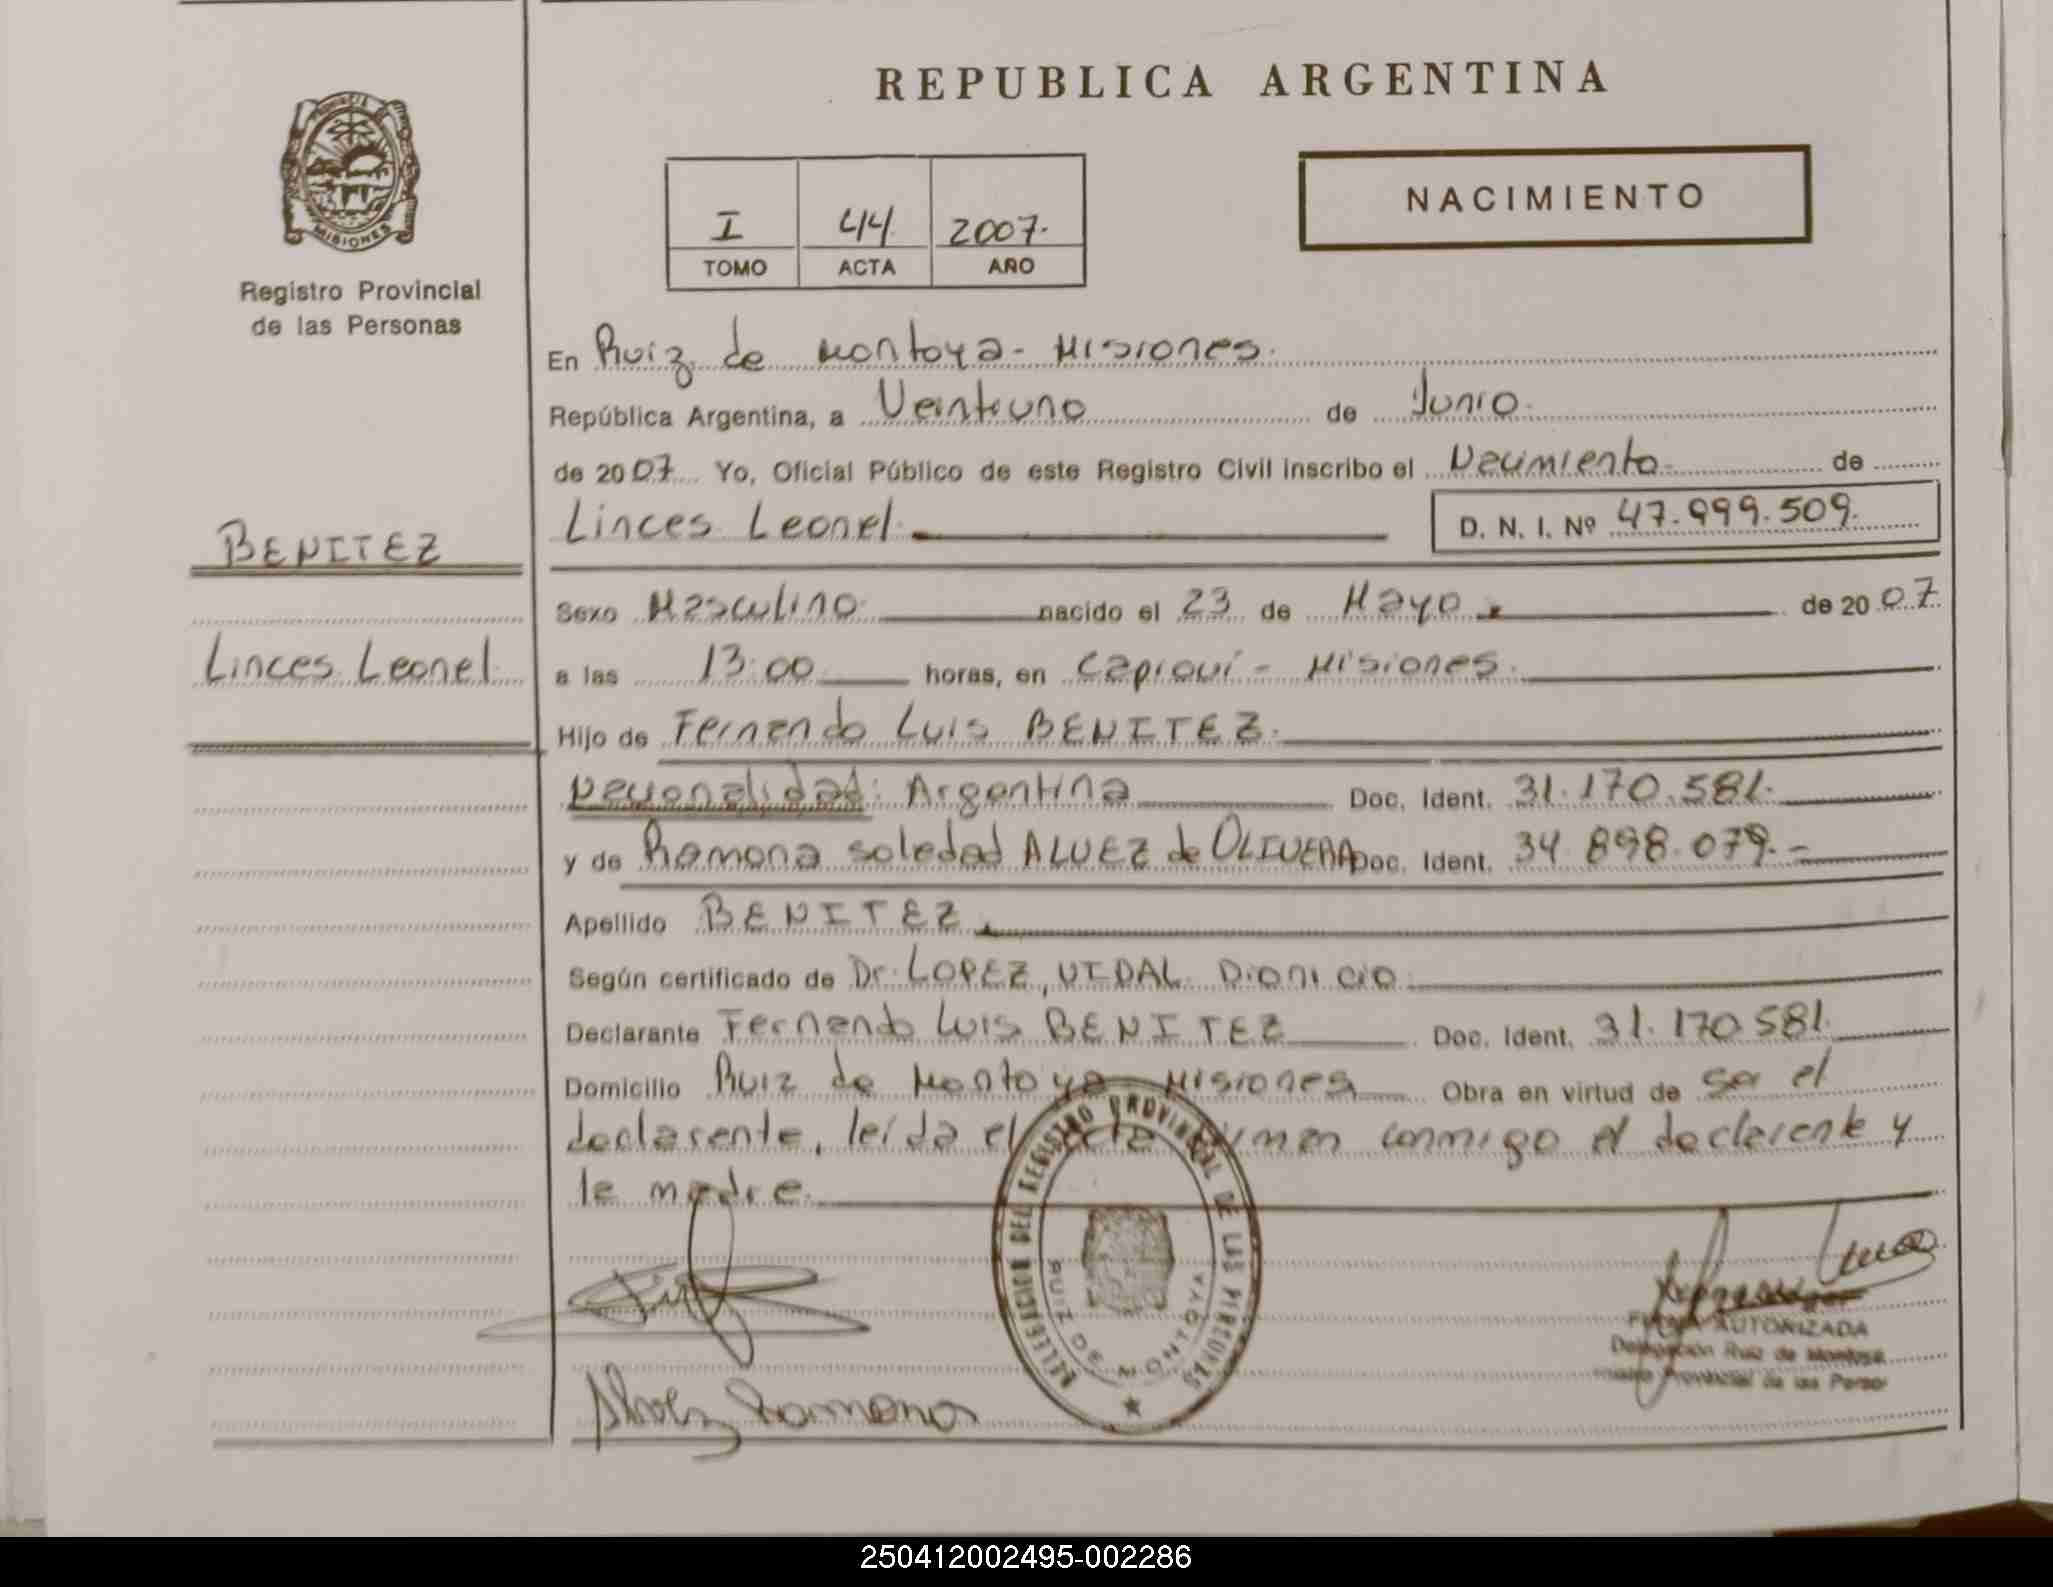 REPUBLICA ARGENTINA
MISIONES
Registro Provincial
de las Personas
I 44 2007.
TOMO ACTA AÑO
NACIMIENTO
En Ruiz de Montoya - Misiones.
República Argentina, a Veintiuno de Junio.
de 2007. Yo, Oficial Público de este Registro Civil inscribo el Nacimiento de
Linces Leonel. D. N. I. Nº 47.999.509.
BENITEZ
Linces Leonel
Sexo Masculino. nacido el 23 de Mayo. de 2007.
a las 13:00 horas, en Capioví - Misiones.
Hijo de Fernando Luis BENITEZ.
Nacionalidad: Argentina Doc. Ident. 31.170.581.
y de Ramona Soledad ALVEZ de OLIVERA Doc. Ident. 34.898.079.-
Apellido BENITEZ.
Según certificado de Dr. LOPEZ, VIDAL Dionicio
Declarante Fernando Luis BENITEZ Doc. Ident. 31.170.581.
Domicilio Ruiz de Montoya Misiones Obra en virtud de ser el
declarante, leída el acta firman conmigo el declarante y
la madre.
DELEGACION DEL REGISTRO PROVINCIAL DE LAS PERSONAS
RUIZ DE MONTOYA
FIRMA AUTORIZADA
Delegación Ruiz de Montoya
Provincial de las Perso
Alvez Ramona
250412002495-002286